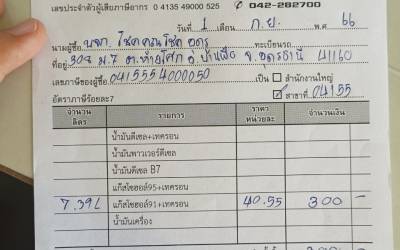 เลขประจำตัวผู้เสียภาษีอากร 0 4135 49000 525 042-282700
วันที่ 1 เดือน ก.ย. พ.ศ. 66
นามผู้ซื้อ หจก. โชคคุณโชค อุดร ทะเบียนรถ
ที่อยู่ 308 ม.7 ต.หายโศก อ.บ้านผือ จ.อุดรธานี 41160
เลขภาษีของผู้ซื้อ 0415554000050 เป็น สำนักงานใหญ่
อัตราภาษีร้อยละ7 สาขาที่ 04155
จำนวนลิตร รายการ ราคาหน่วยละ จำนวนเงิน
น้ำมันดีเซล+เทครอน
น้ำมันพาวเวอร์ดีเซล
น้ำมันดีเซล B7
7.39L แก๊สโซฮอล์95+เทครอน 40.55 300 -
แก๊สโซฮอล์91+เทครอน
น้ำมันเครื่อง